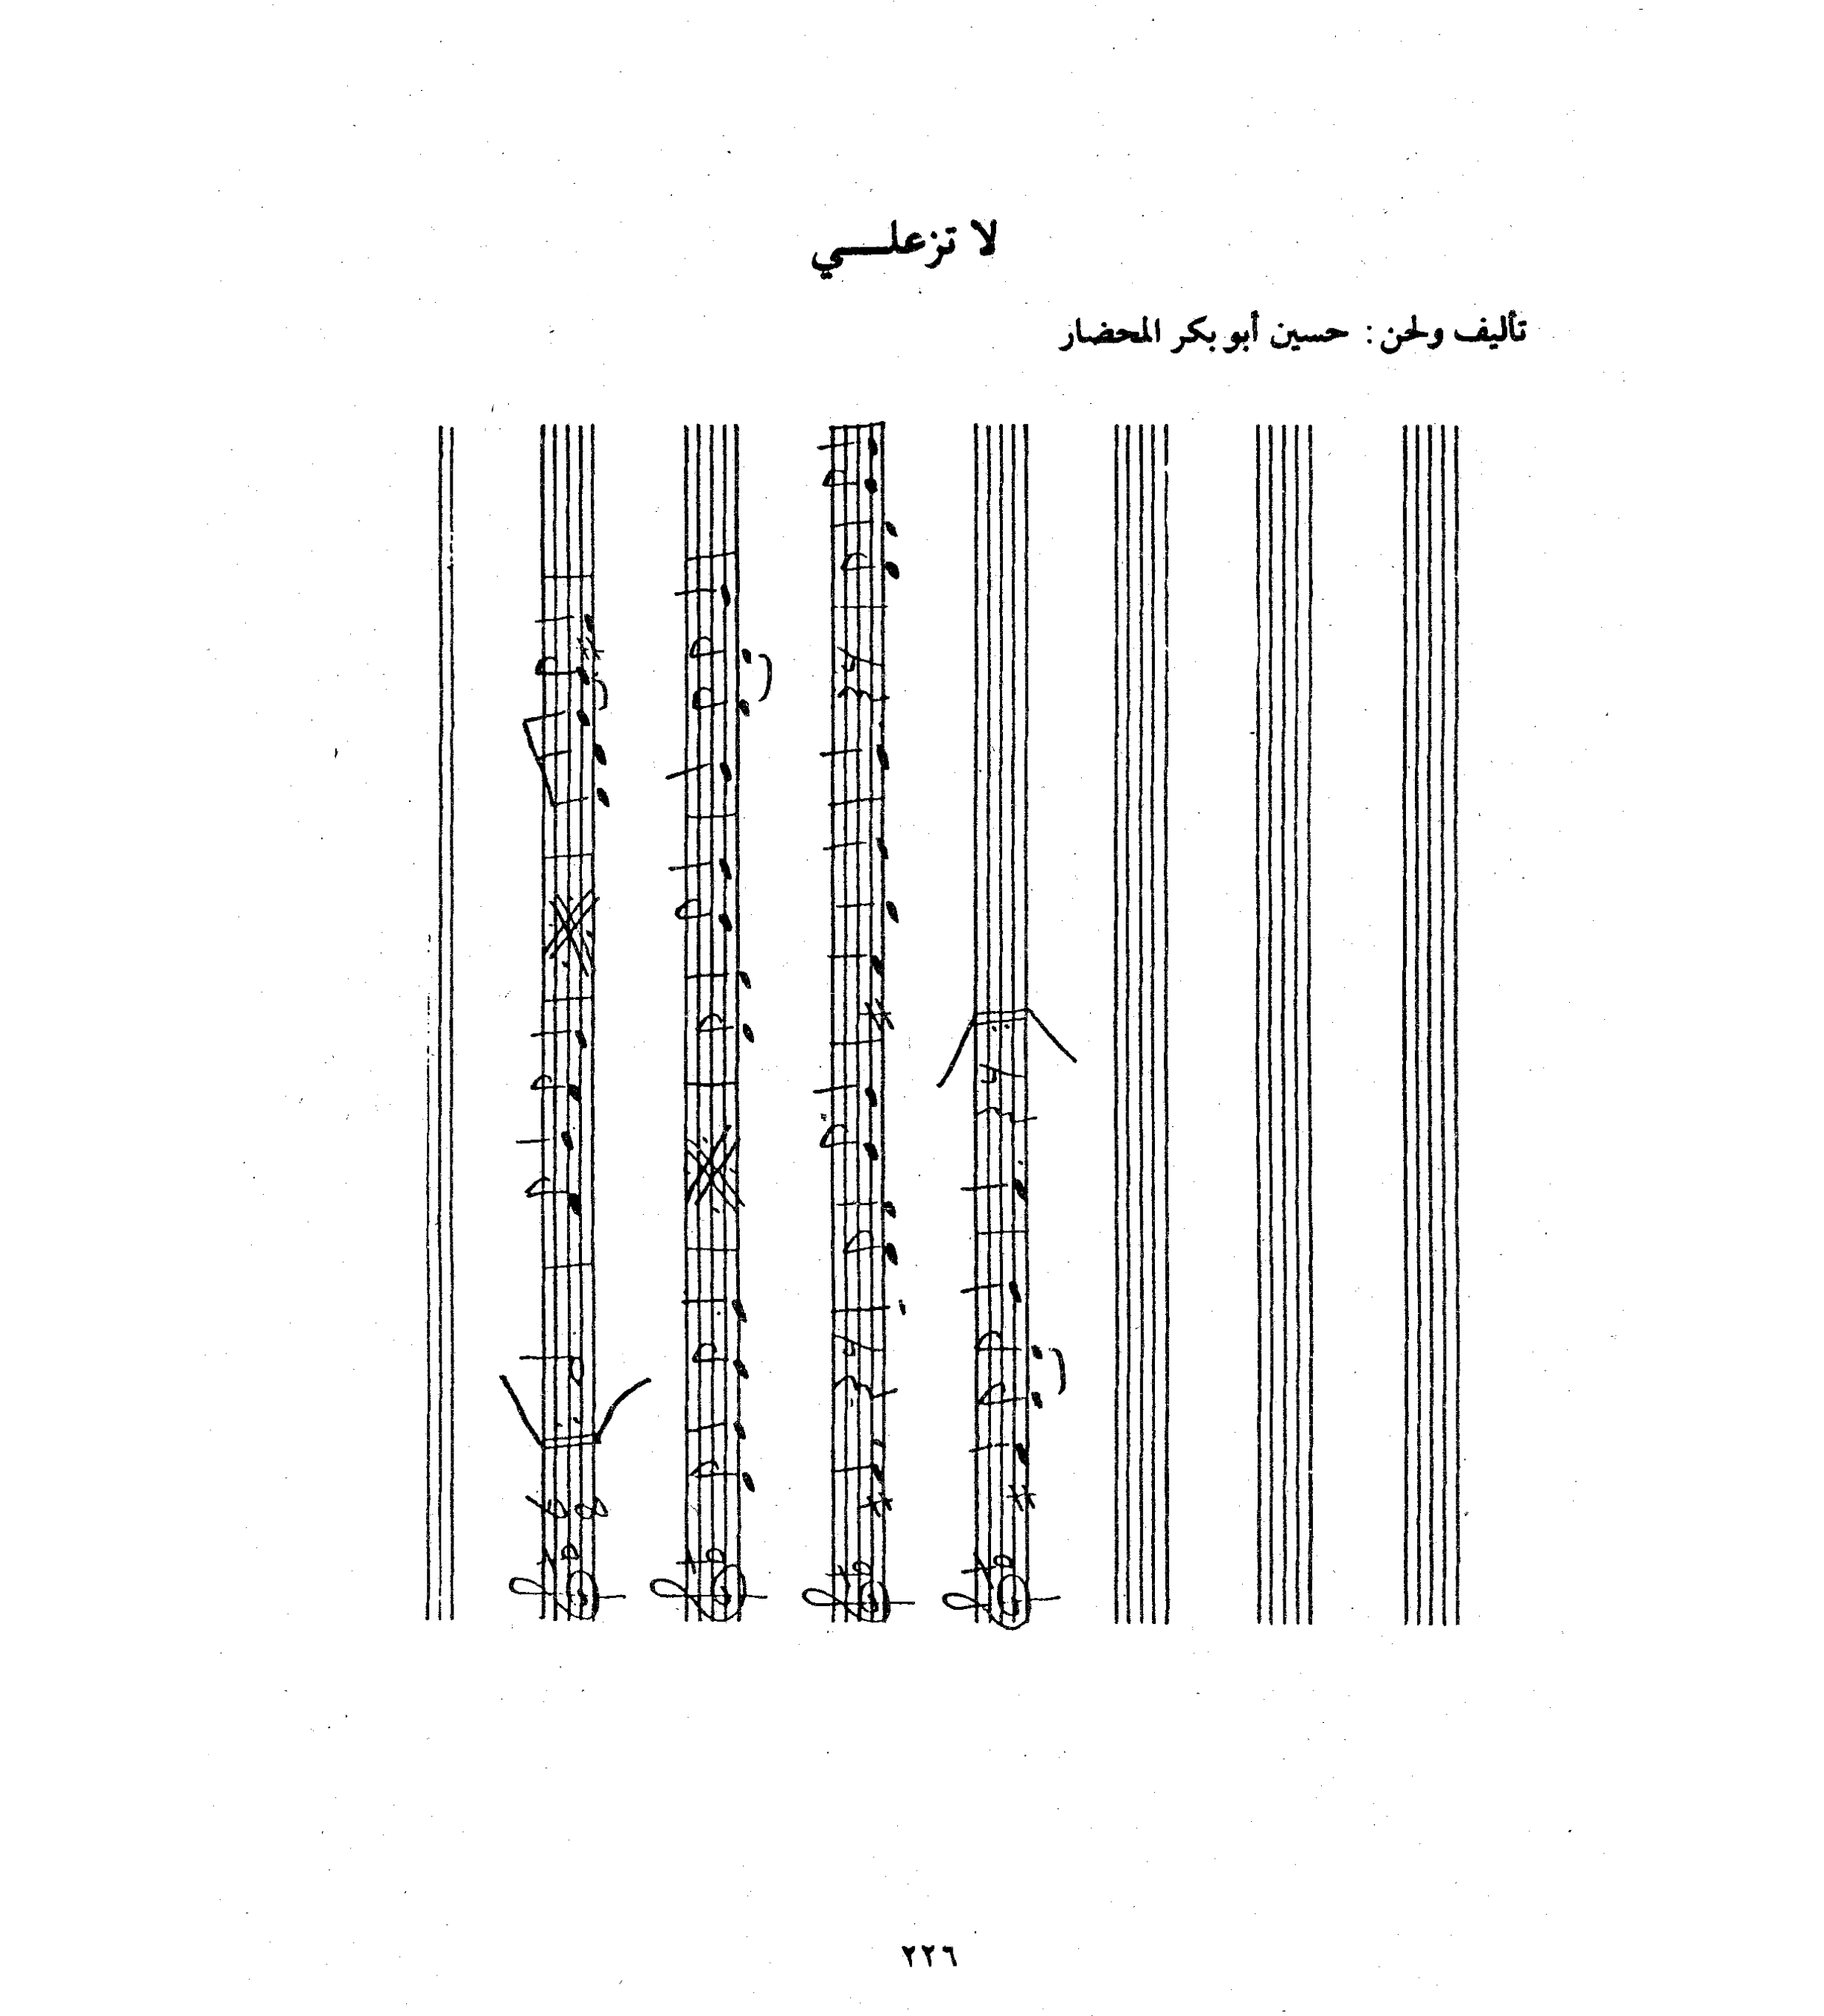 لا تزعلي
تأليف ولحن: حسين أبو بكر المحضار
٢٢٦